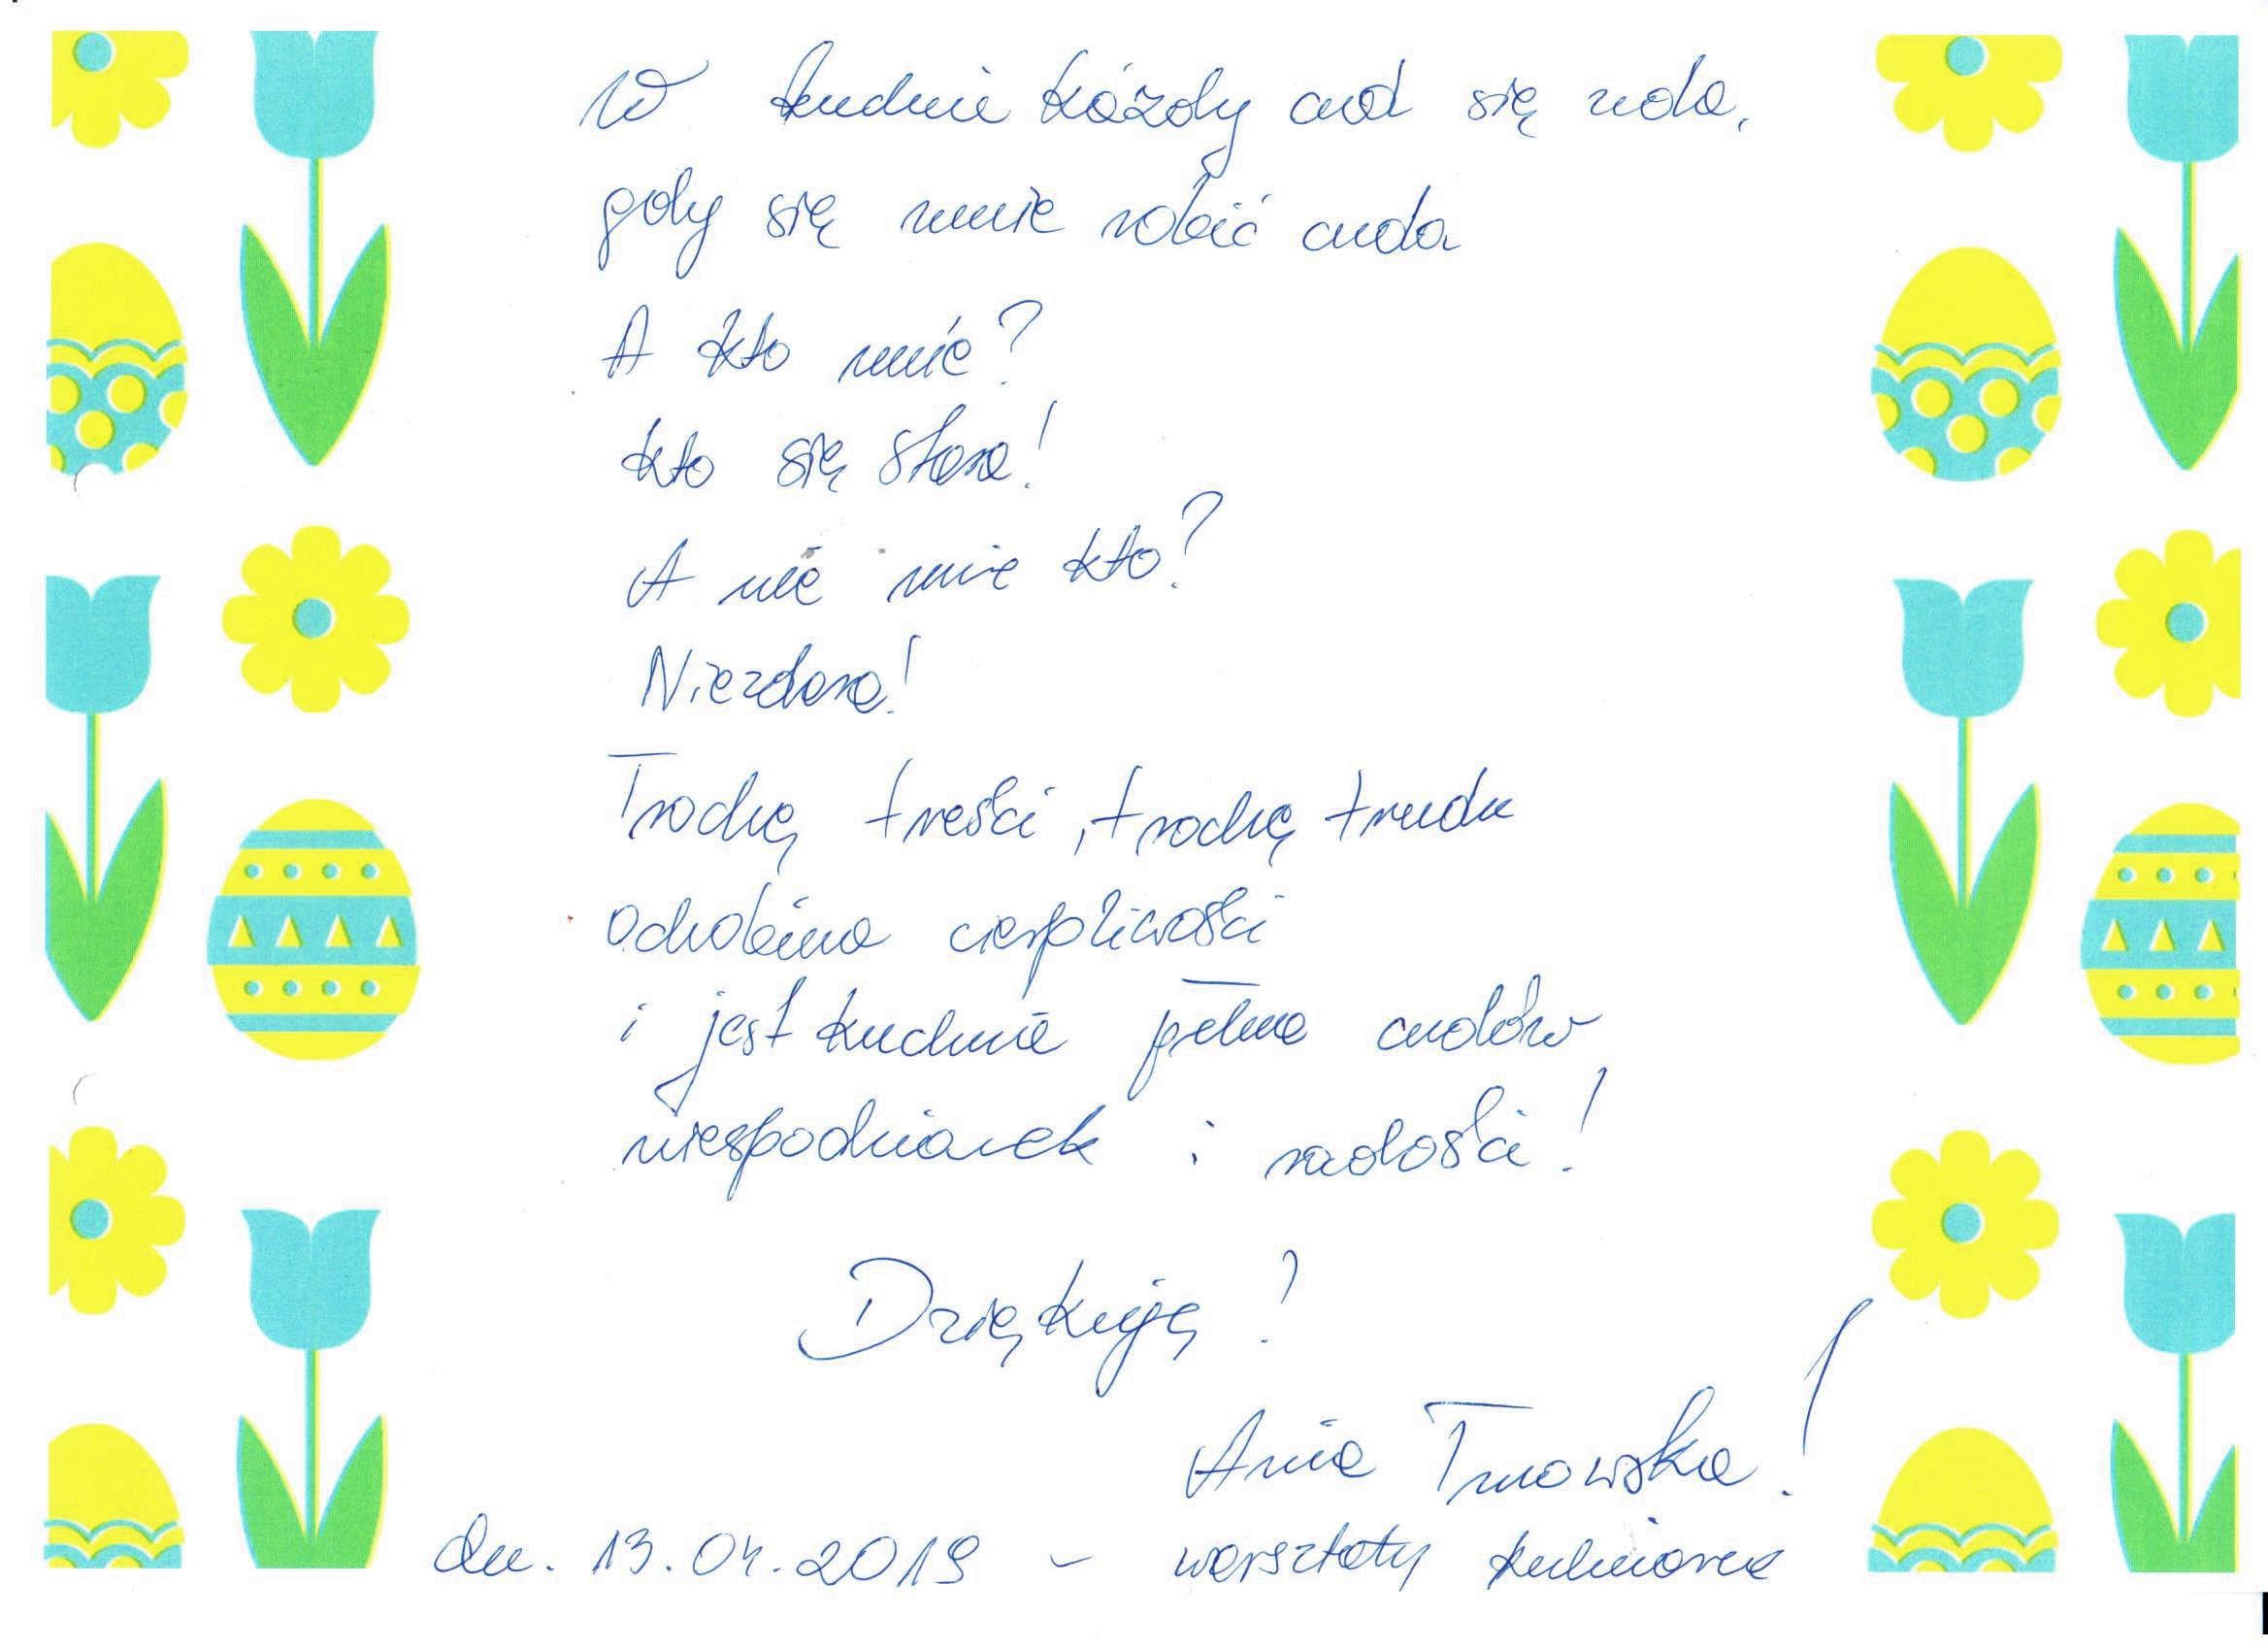 W kuchni każdy cud się uda,
gdy się umie robić cuda
A kto umie?
Kto się stara!
A nie umie kto?
Niezdara!
Trochę treści, trochę trudu
Odrobina cierpliwości
i jest kuchnia pełna cudów
niespodzianek i radości!
Dziękuję!
Ania
dn. 13.04.2019 - warsztaty kulinarne